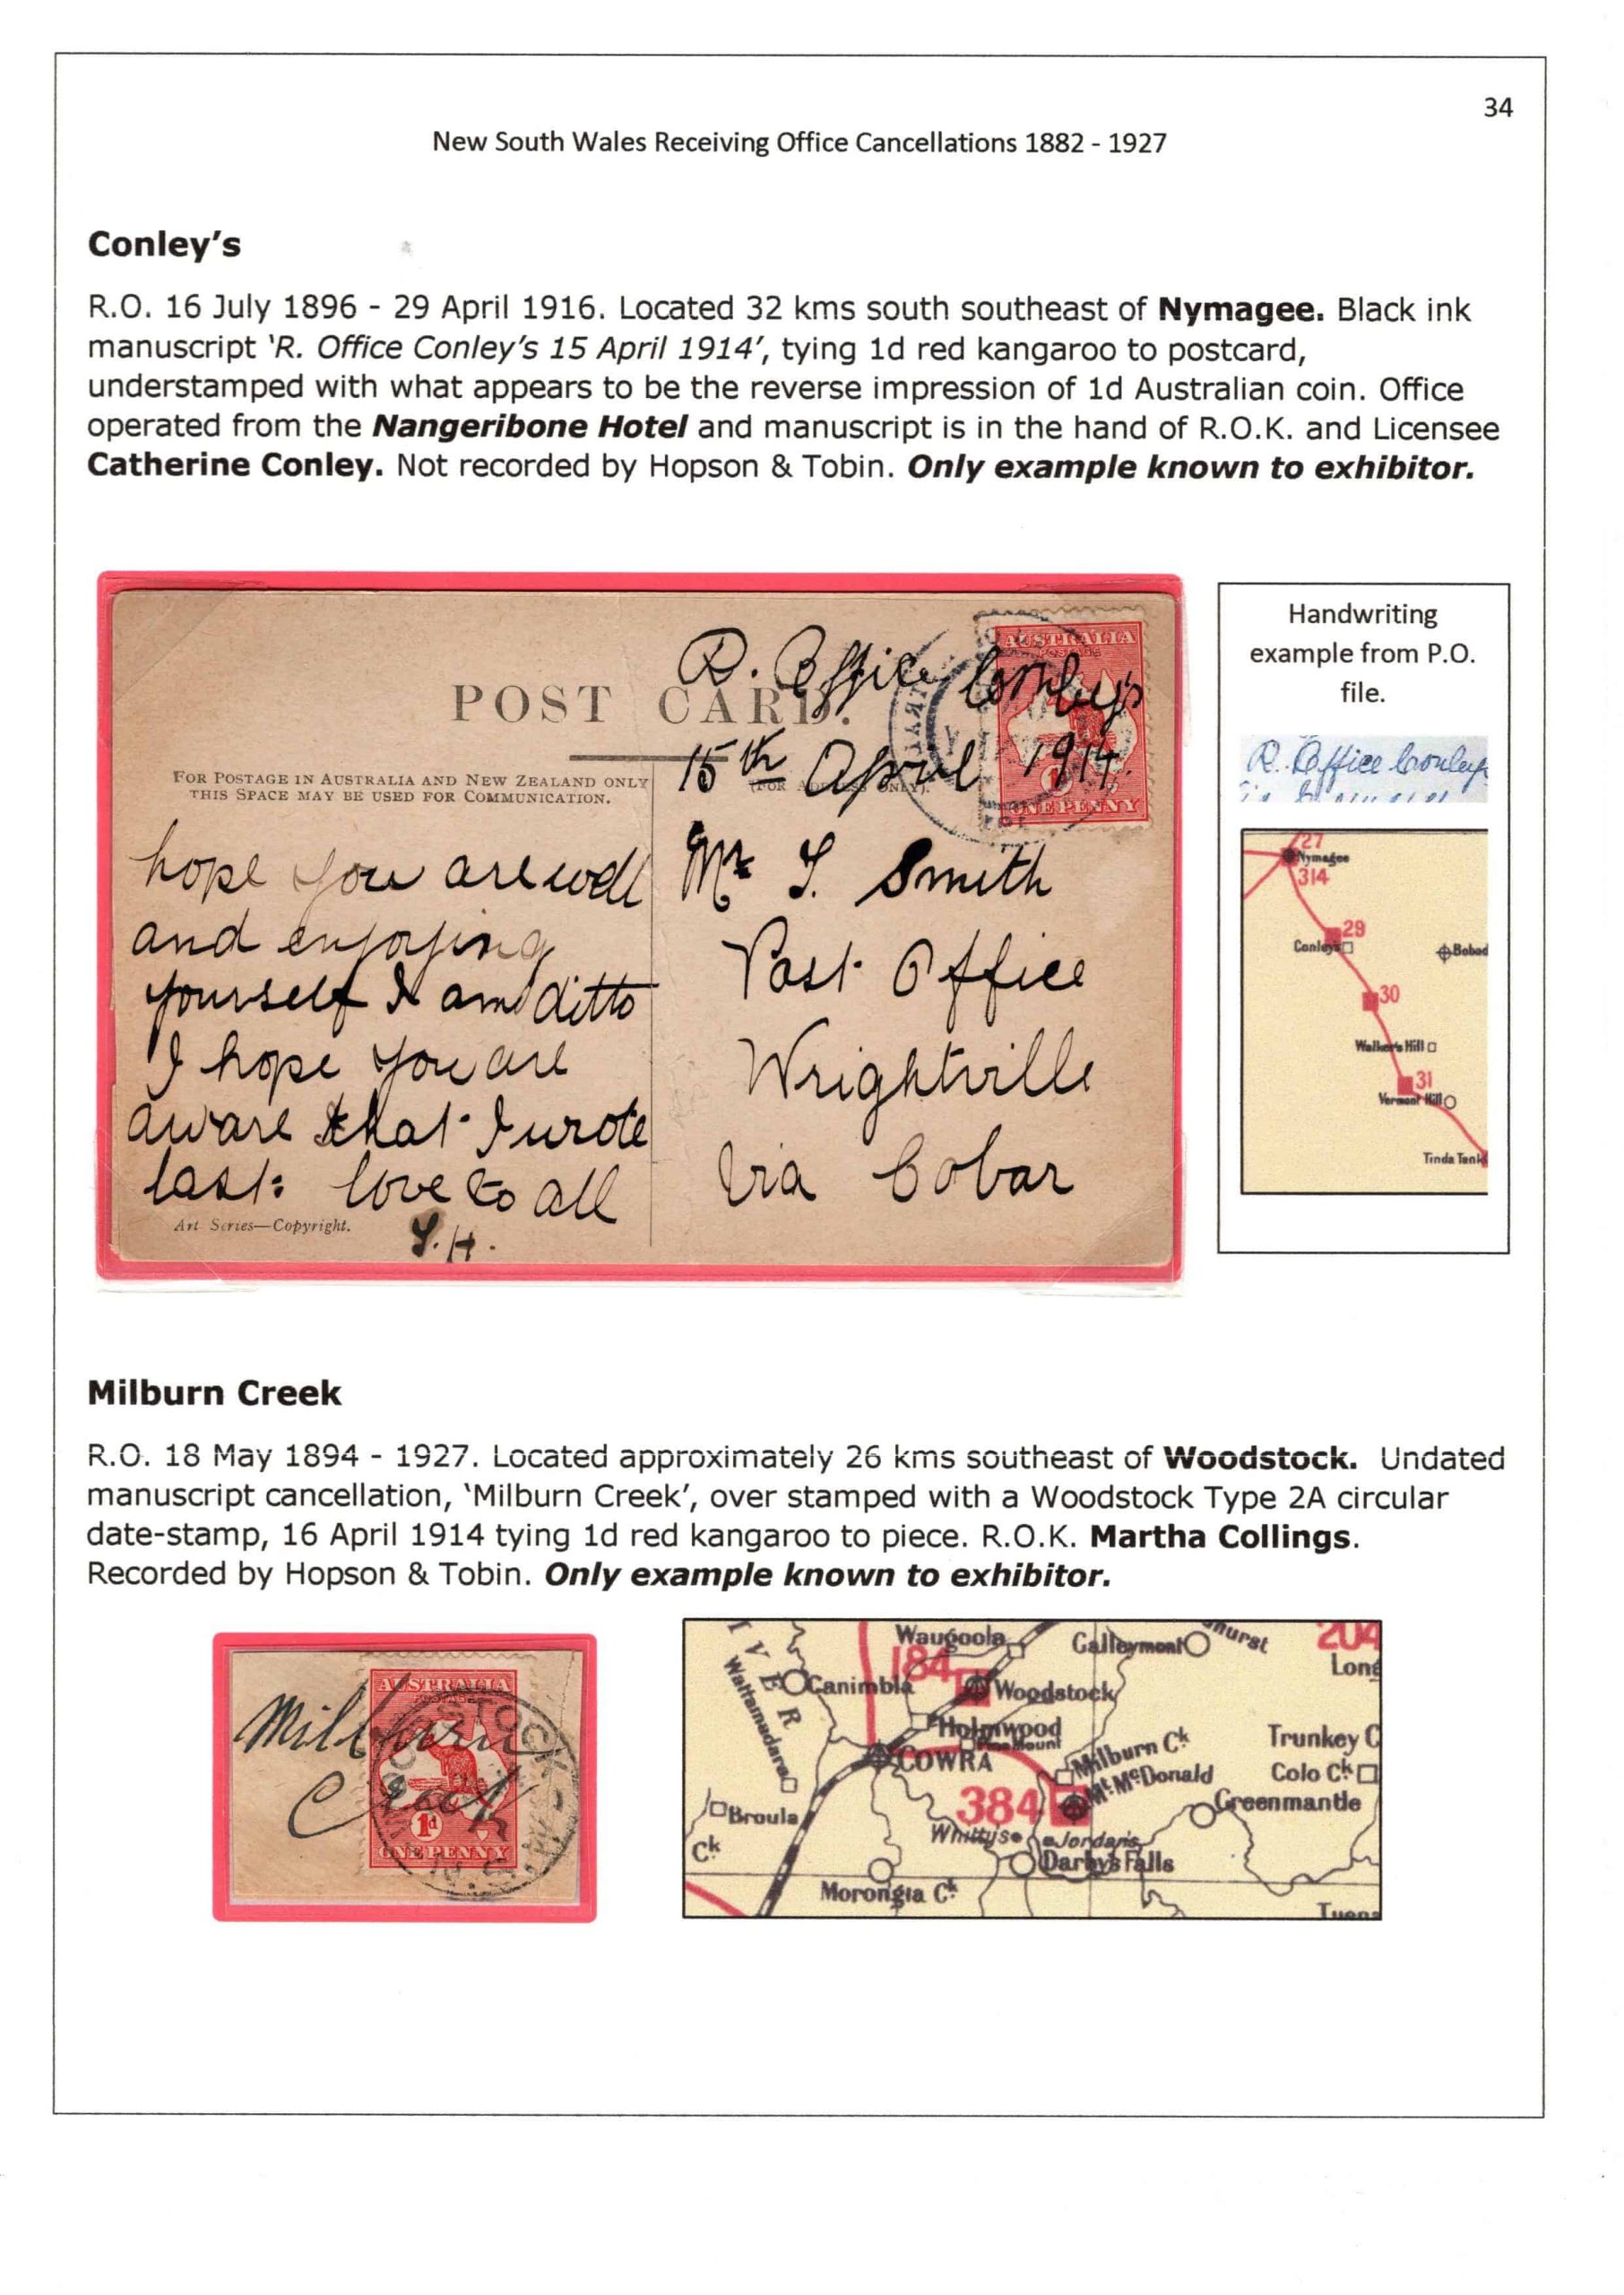 34
New South Wales Receiving Office Cancellations 1882 - 1927
Conley's
R.O. 16 July 1896 - 29 April 1916. Located 32 kms south southeast of Nymagee. Black ink
manuscript 'R. Office Conley's 15 April 1914', tying 1d red kangaroo to postcard,
understamped with what appears to be the reverse impression of 1d Australian coin. Office
operated from the Nangeribone Hotel and manuscript is in the hand of R.O.K. and Licensee
Catherine Conley. Not recorded by Hopson & Tobin. Only example known to exhibitor.
R. Office Conley's
15th April 1914.
POST CARD.
AUSTRALIA
POSTAGE
ONE PENNY
FOR POSTAGE IN AUSTRALIA AND NEW ZEALAND ONLY
THIS SPACE MAY BE USED FOR COMMUNICATION.
(FOR ADDRESS ONLY).
hope you are well
and enjoying
yourself I am ditto
I hope you are
aware that I wrote
last: love to all
Art Series—Copyright.
Mr Smith
Post Office
Wrightville
Via Cobar
Handwriting
example from P.O.
file.
R. Office Conley
27
Nymagee
314
29
Conley's
Bobad
30
Walker's Hill
31
Vermont Hill
Tinda Tank
Milburn Creek
R.O. 18 May 1894 - 1927. Located approximately 26 kms southeast of Woodstock. Undated
manuscript cancellation, 'Milburn Creek', over stamped with a Woodstock Type 2A circular
date-stamp, 16 April 1914 tying 1d red kangaroo to piece. R.O.K. Martha Collings.
Recorded by Hopson & Tobin. Only example known to exhibitor.
Milburn
Creek
AUSTRALIA
POSTAGE
1d
ONE PENNY
WOODSTOCK
N.S.W
IVER
Waugoola
Galleymont
hurst
204
Long
184
Canimbla
Woodstock
Wattamadara
Holmwood
Pine Mount
COWRA
Milburn Ck
Mt McDonald
Trunkey C
Colo Ck
384
Greenmantle
Broula
Whittys
Jordans
Ck
Darby's Falls
Morongla Ck
Tuena